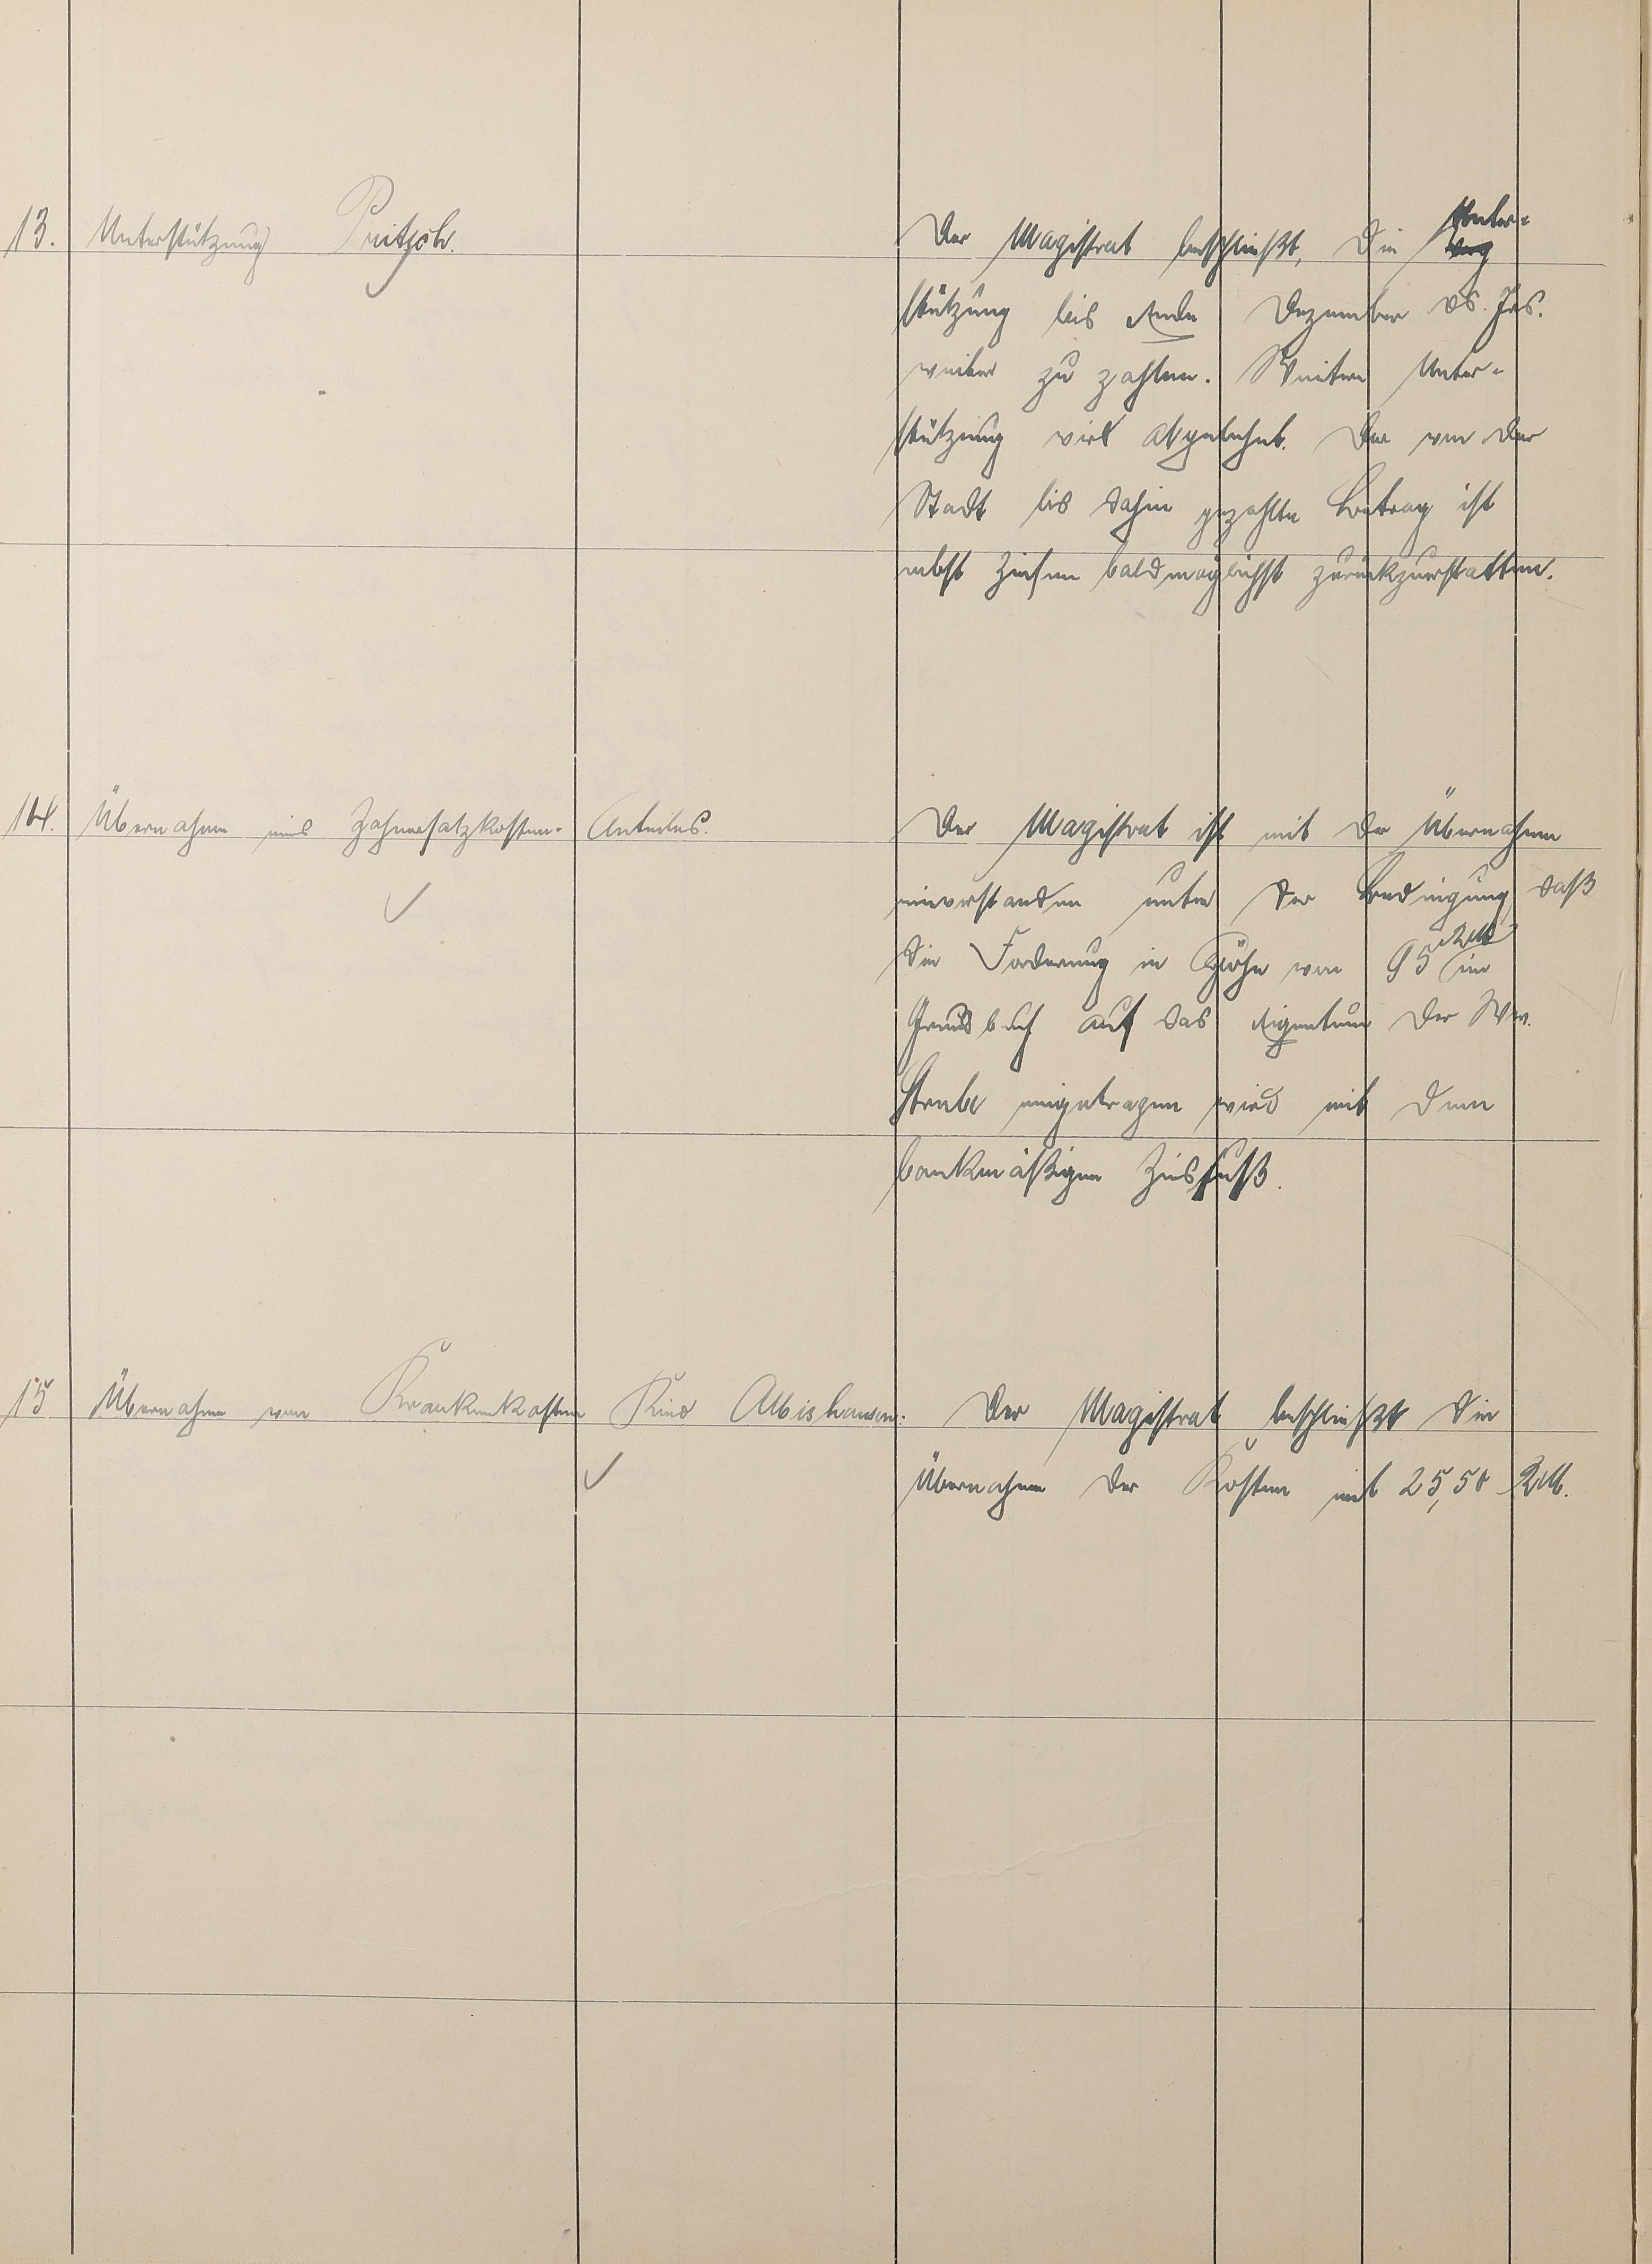 13. Unterstützung Pritzsch.
Der Magistrat beschließt, die Unter-
stützung bis Ende Dezember ds. Jrs.
weiter zu zahlen. Weitere Unter-
stützung wird abgelehnt. Der von der
Stadt bis dahin gezahlte Betrag ist
nebst Zinsen baldmöglichst zurückzuerstatten.
14. Übernahme eines Zahnersatzkosten- Anteiles.
Der Magistrat ist mit der Übernahme
einverstanden unter der Bedingung, daß
die Forderung in Höhe von 95 RM im
Grundbuch auf das Eigentum der Ww.
eingetragen wird mit dem
bankmäßigen Zinsfuß.
15 Übernahme von Krankenkosten Kind Albishausen.
Der Magistrat beschließt die
Übernahme der Kosten mit 25,50 RM.